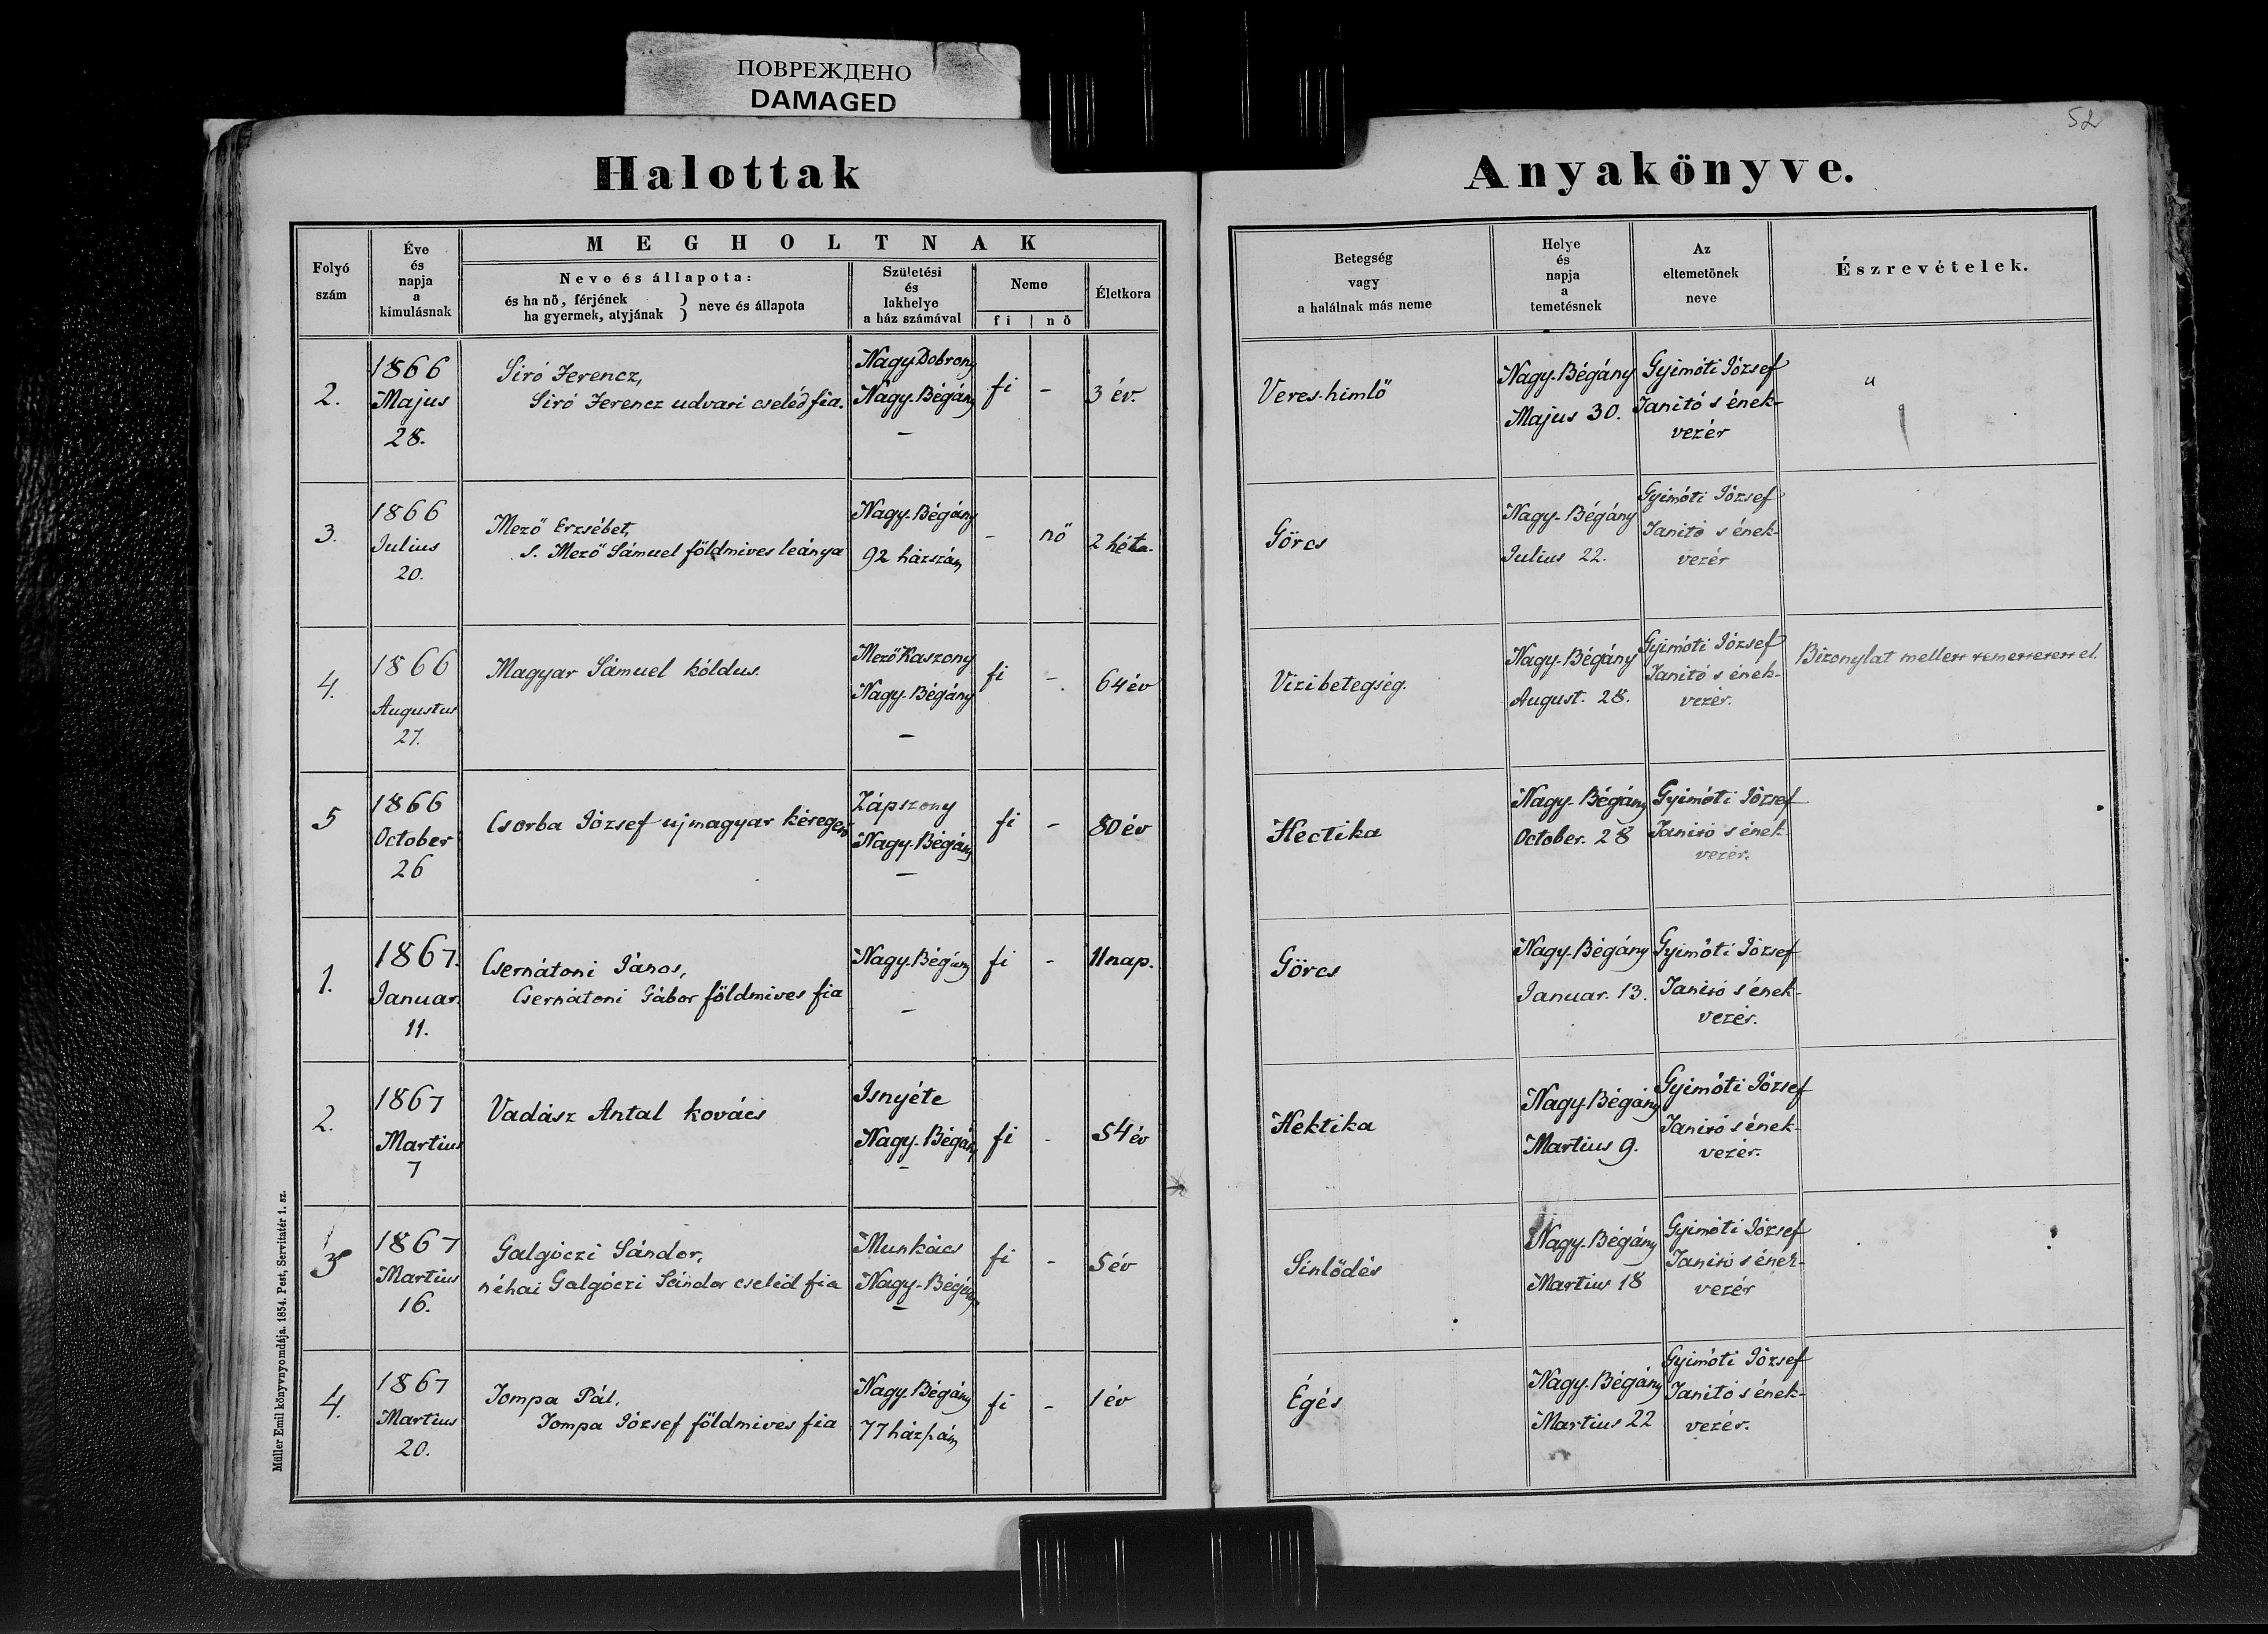 ПОВРЕЖДЕНО
DAMAGED
52
Halottak
Anyakönyve.
Folyó
szám
Éve
és
napja
a
kimulásnak
MEGHOLTNAK
Neve és állapota:
és ha nö, férjének
ha gyermek, atyjának } neve és állapota
Születési
és
lakhelye
a ház számával
Neme
fi | nö
Életkora
Betegség
vagy
a halálnak más neme
Helye
és
napja
a
temetésnek
Az
eltemetönek
neve
Észrevételek.
2.
1866
Majus
28.
Siró Ferencz,
Siró Ferencz udvari cseléd fia.
Nagy Dobrony
Nagy-Bégány
–
fi
–
3 év.
Veres-himlő
Nagy-Bégány
Majus 30.
Gyimóti József
Tanító s ének-
vezér
"
3.
1866
Julius
20.
Mező Erzsébet,
s. Mező Sámuel földmives leánya
Nagy-Bégány
92 házszám
–
nö
2 héta.
Görcs
Nagy-Bégány
Julius 22.
Gyimóti József
Tanitó s ének-
vezér
4.
1866
Augustus
27.
Magyar Sámuel kóldus.
Mező Kaszony
Nagy-Bégány
–
fi
–
64 év
Vizibetegség.
Nagy-Bégány
August. 28.
Gyimóti József
Tanitó s ének-
vezér.
Bizonylat mellett temettetett el.
5
1866
October
26
Csorba József ujmagyar
Zápszony
Nagy-Bégány
–
fi
–
80 év
Hectika
Nagy-Bégány
October. 28
Gyimóti József
Tanitó s ének
vezér.
1.
1867.
Januar.
11.
Csernátoni János,
Csernátoni Gábor földmives fia
Nagy-Bégány
–
fi
–
11 nap.
Görcs
Nagy-Bégány
Januar. 13.
Gyimóti József
Tanitó s ének-
vezér.
2.
1867
Martius
7
Vadász Antal kovács
Isnyéte
Nagy-Bégány
–
fi
-
54 év
Hektika
Nagy-Bégány
Martius 9.
Gyimóti József
Tanitó s ének-
vezér.
3
1867
Martius
16.
Galgóczi Sándor,
néhai Galgóczi Sándor cseléd fia
Munkács
Nagy-Bégány
–
fi
-
5 év
Sinlődés
Nagy-Bégány
Martius 18
Gyimóti József
Tanitó s ének-
vezér
4.
1867
Martius
20.
Tompa Pál,
Tompa József földmives fia
Nagy-Bégány
77 házszám
fi
-
1 év
Égés
Nagy-Bégány
Martius 22
Gyimóti József
Tanitó s ének-
vezér.
Müller Emil könyvnyomdája. 1854. Pest, Servitatér 1. sz.